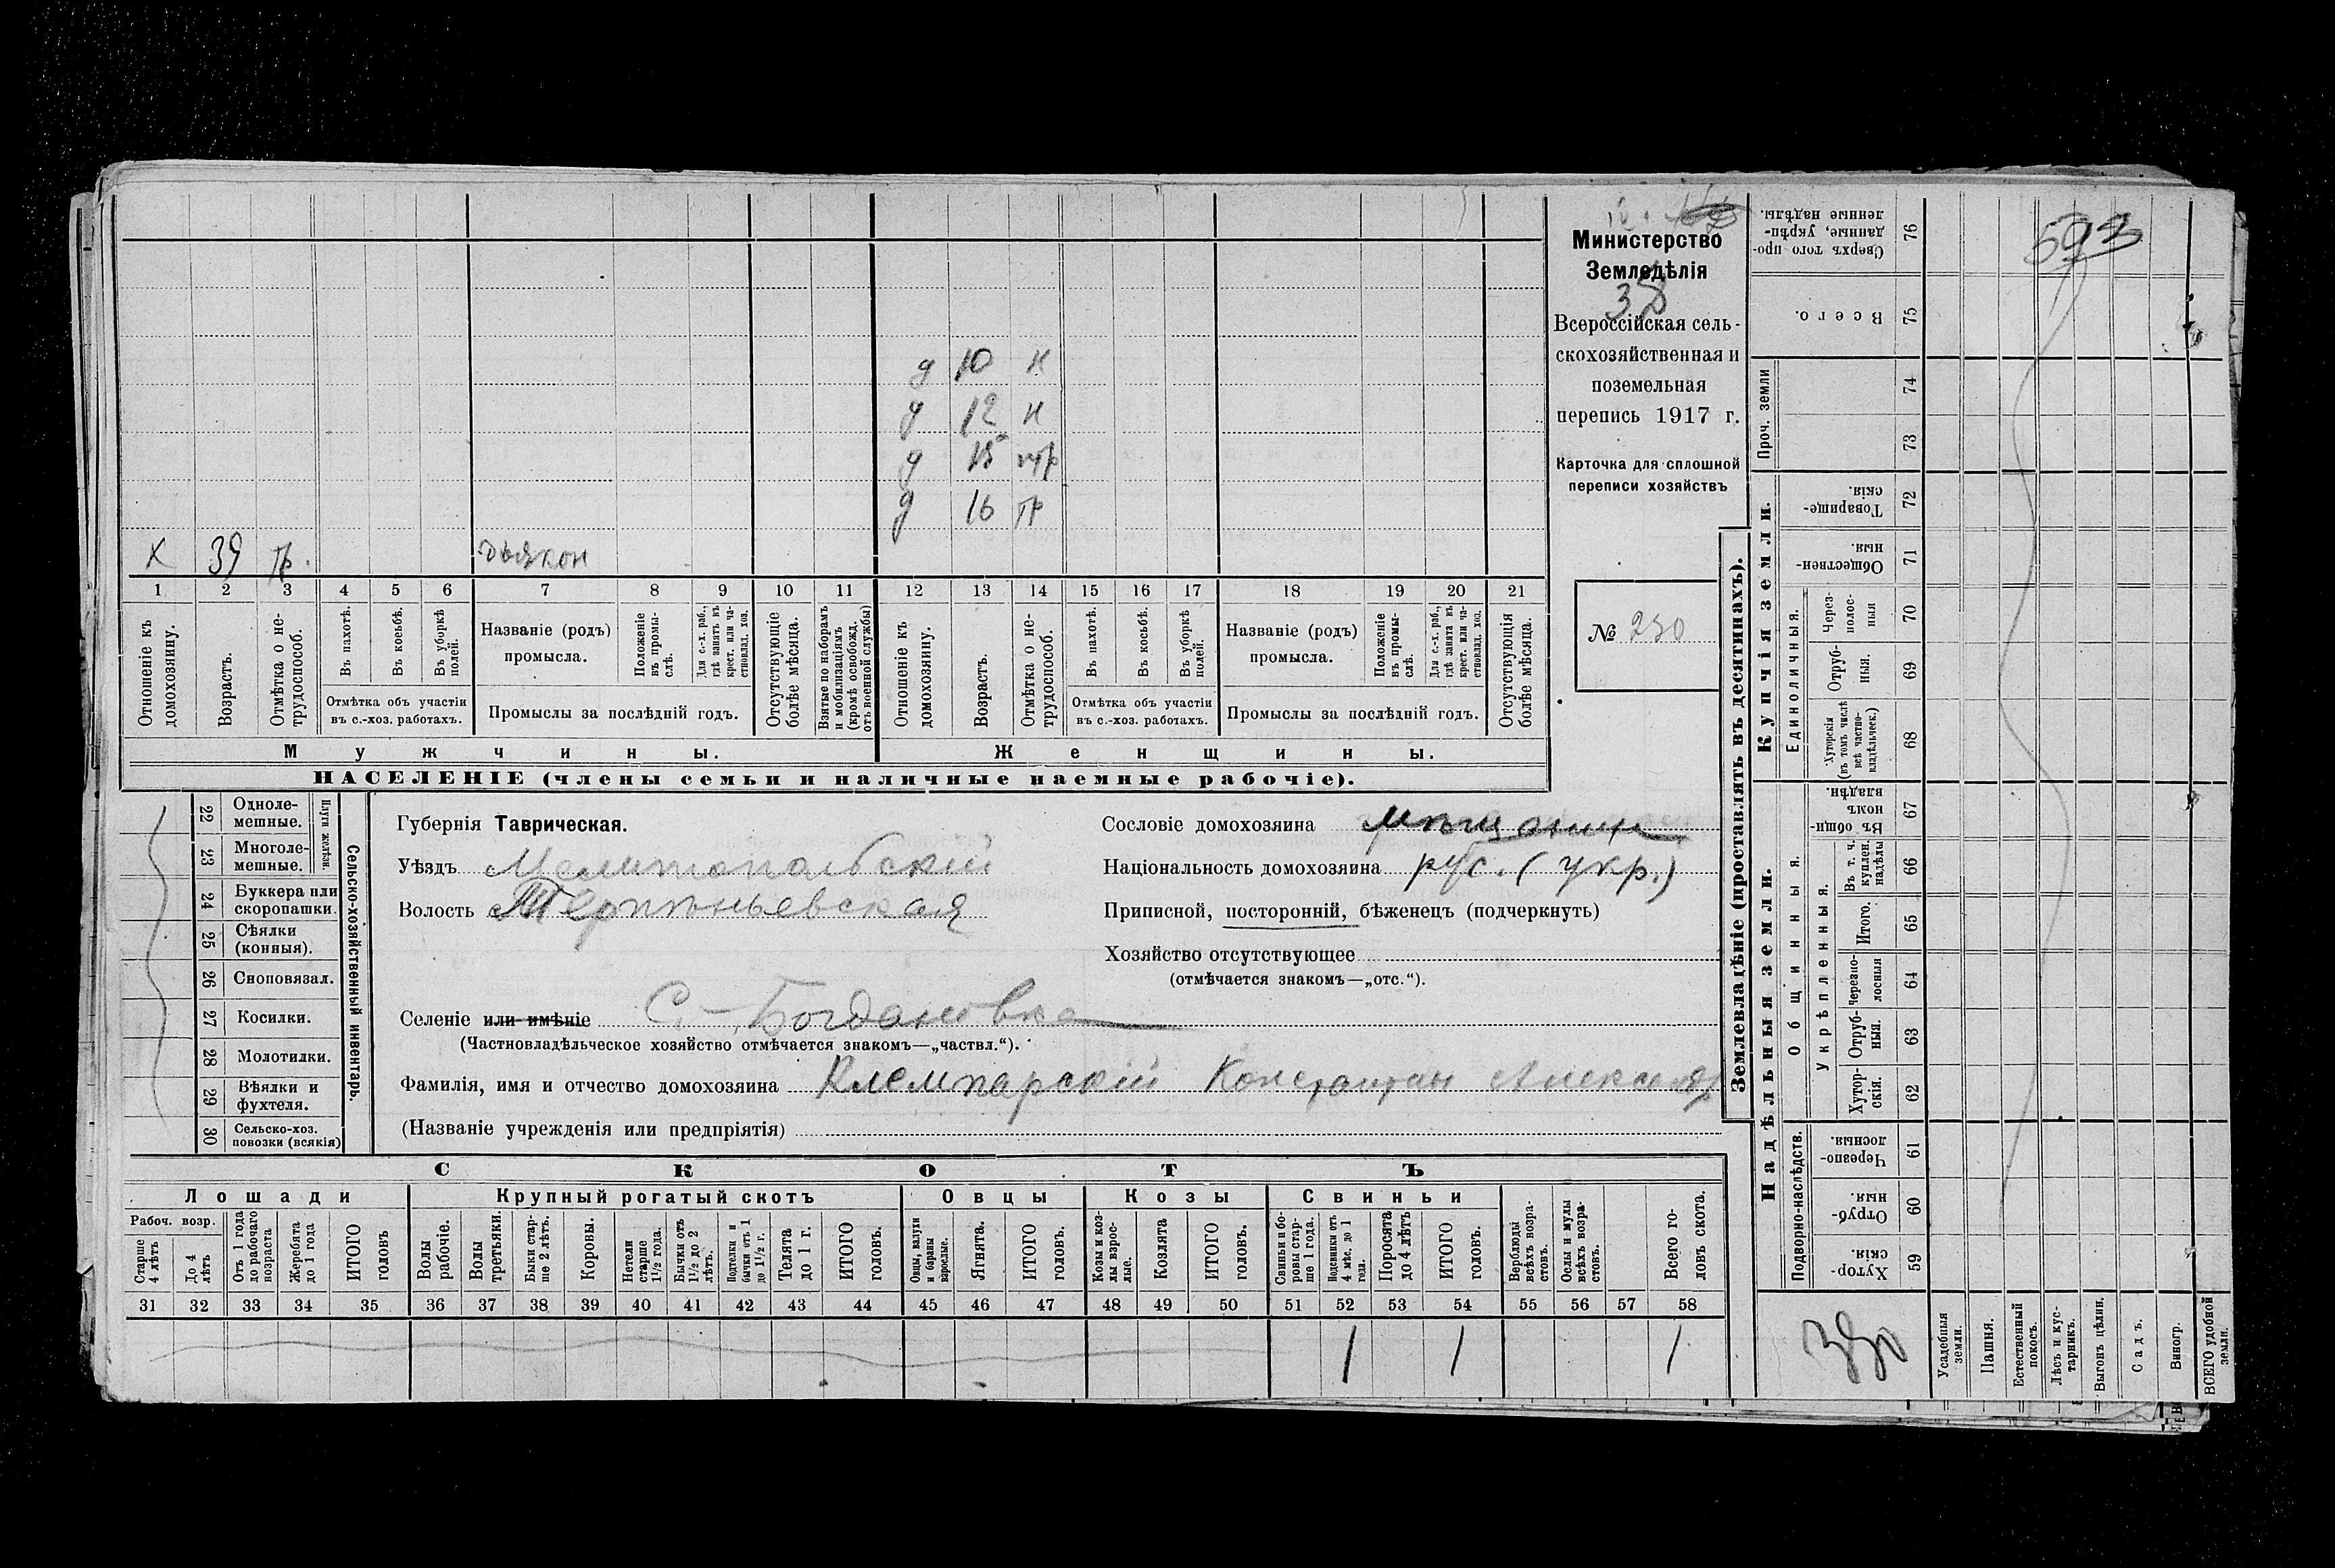 593
Министерство
Земледѣлія
38
Всероссійская сель-
скохозяйственная и
поземельная
перепись 1917 г.
Карточка для сплошной
переписи хозяйствъ
№ 230
д 10 н
д 12 н
д 15 нтр
д 16 тр
х 39 тр. дьякон
1 2 3 4 5 6 7 8 9 10 11 12 13 14 15 16 17 18 19 20 21
Отношеніе къ домохозяину.
Возрастъ.
Отмѣтка о не-трудоспособ.
Въ пахотѣ.
Въ косьбѣ.
Въ уборкѣ полей.
Отмѣтка объ участіи
въ с.-хоз. работахъ.
Названіе (родъ)
промысла.
Положеніе въ промы-слѣ.
Для с.-х. раб., гдѣ занятъ въ крест. или ча-стновлад. хоз.
Промыслы за послѣдній годъ.
Отсутствующіе болѣе мѣсяца.
Взятые по наборамъ и мобилизаціямъ (кромѣ освобожд. отъ военной службы)
Отношеніе къ домохозяину.
Возрастъ.
Отмѣтка о не-трудоспособ.
Въ пахотѣ.
Въ косьбѣ.
Въ уборкѣ полей.
Отмѣтка объ участіи
въ с.-хоз. работахъ.
Названіе (родъ)
промысла.
Положеніе въ промы-слѣ.
Для с.-х. раб., гдѣ занята въ крест. или ча-стновлад. хоз.
Промыслы за послѣдній годъ.
Отсутствующія болѣе мѣсяца.
Мужчины.
Женщины.
НАСЕЛЕНІЕ (члены семьи и наличные наемные рабочіе).
22 Одноле-мешные.
23 Многоле-мешные.
Плуги желѣзн.
24 Буккера или скоропашки.
25 Сѣялки (конныя).
26 Сноповязал.
27 Косилки.
28 Молотилки.
29 Вѣялки и фухтеля.
30 Сельско-хоз. повозки (всякія)
Сельско-хозяйственный инвентарь.
Губернія Таврическая.
Уѣздъ Мелитопольскій
Волость Терпѣньевская
Селеніе или имѣніе С.-Богдановка
(Частновладѣльческое хозяйство отмѣчается знакомъ—„частвл.“).
Фамилія, имя и отчество домохозяина Клемпарскій Константин Александр
(Названіе учрежденія или предпріятія)
Сословіе домохозяина мѣщанин
Національность домохозяина рус. (укр.)
Приписной, посторонній, бѣженецъ (подчеркнуть)
Хозяйство отсутствующее
(отмѣчается знакомъ—„отс.“).
СКОТЪ
Лошади
Крупный рогатый скотъ
Овцы
Козы
Свиньи
Рабоч. возр.
Старше 4 лѣтъ
До 4 лѣтъ
Отъ 1 года до рабочаго возраста
Жеребята до 1 года
ИТОГО головъ
Волы рабочіе.
Волы третьяки.
Быки стар-ше 2 лѣтъ.
Коровы.
Нетели старше 1½ года.
Бычки отъ 1½ до 2 лѣтъ.
Подтелки и бычки отъ 1 до 1½ г.
Телята до 1 г.
ИТОГО головъ.
Овцы, валухи и бараны взрослые.
Ягнята.
ИТОГО головъ.
Козы и коз-лы взрос-лые.
Козлята
ИТОГО головъ.
Свиньи и бо-ровы стар-ше 1 года.
Подсвинки отъ 4 мѣс. до 1 года.
Поросята до 4 лѣтъ
ИТОГО головъ.
Верблюды всѣхъ возра-стовъ.
Ослы и мулы всѣхъ возра-стовъ.
Всего го-ловъ скота.
31 32 33 34 35 36 37 38 39 40 41 42 43 44 45 46 47 48 49 50 51 52 53 54 55 56 57 58
1 1 1
Землевладѣніе (проставлять въ десятинахъ).
Надѣльныя земли.
Купчія земли.
Проч. земли
Подворно-наслѣдств.
Общинныя.
Укрѣпленныя.
Единоличныя.
76 Сверхъ того про-данные, укрѣп-ленные надѣлы.
75 Всего.
74
73
72 Товарище-скія.
71 Обществен-ныя.
70 Через-полос-ныя
69 Отруб-ныя.
68 Хуторскія (въ томъ числѣ всѣ частно-владѣльческ.)
67 Въ общин-номъ владѣн.
66 Въ т. ч. куплен. надѣлы
65 Итого.
64 Черезпо-лосныя
63 Отруб-ныя.
62 Хутор-скія.
61 Черезпо-лосныя.
60 Отруб-ныя.
59 Хутор-скія.
Усадебныя земли.
Пашня.
Естественный покосъ.
Лѣсъ и кус-тарникъ.
Выгонъ цѣлин.
Садъ.
Виногр.
ВСЕГО удобной земли.